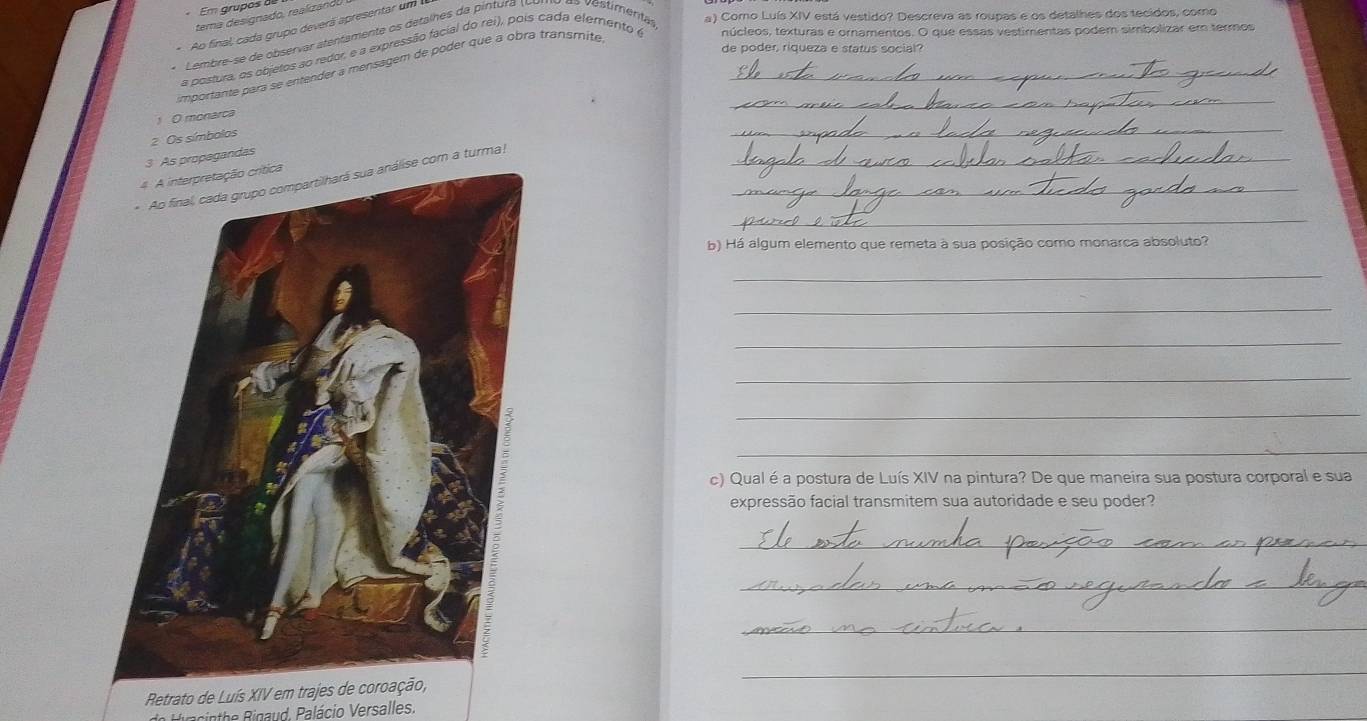 Em grupos de
tema designado, realizando
Ao final, cada grupo deverá apresentar um
Lembre-se de observar atentamente os detalhes da pintura (como as vestimentas,
a postura, os objetos ao redor, e a expressão facial do rei), pois cada elemento é
importante para se entender a mensagem de poder que a obra transmite.
1 O monarca
2 Os símbolos
3 As propagandas
4 A interpretação crítica
Ao final, cada grupo compartilhará sua análise com a turma!
HYACINTHE RIGAUD/RETRATO DE LUÍS XIV EM TRAJES DE COROAÇÃO
Retrato de Luís XIV em trajes de coroação,
de Hyacinthe Rigaud, Palácio Versalles.
a) Como Luís XIV está vestido? Descreva as roupas e os detalhes dos tecidos, como
núcleos, texturas e ornamentos. O que essas vestimentas podem simbolizar em termos
de poder, riqueza e status social?
Ele esta usando um muito grande
com meia calsa branca con sapatos com
um espada no lado segurando uma
bengala de ouro cabelos soltos cacheados
manga longa con um tecido
e etc
b) Há algum elemento que remeta à sua posição como monarca absoluto?
c) Qual é a postura de Luís XIV na pintura? De que maneira sua postura corporal e sua
expressão facial transmitem sua autoridade e seu poder?
Ele esta numha posição com as pernas
cruzadas uma mão segurando a benga
mão na cintura.